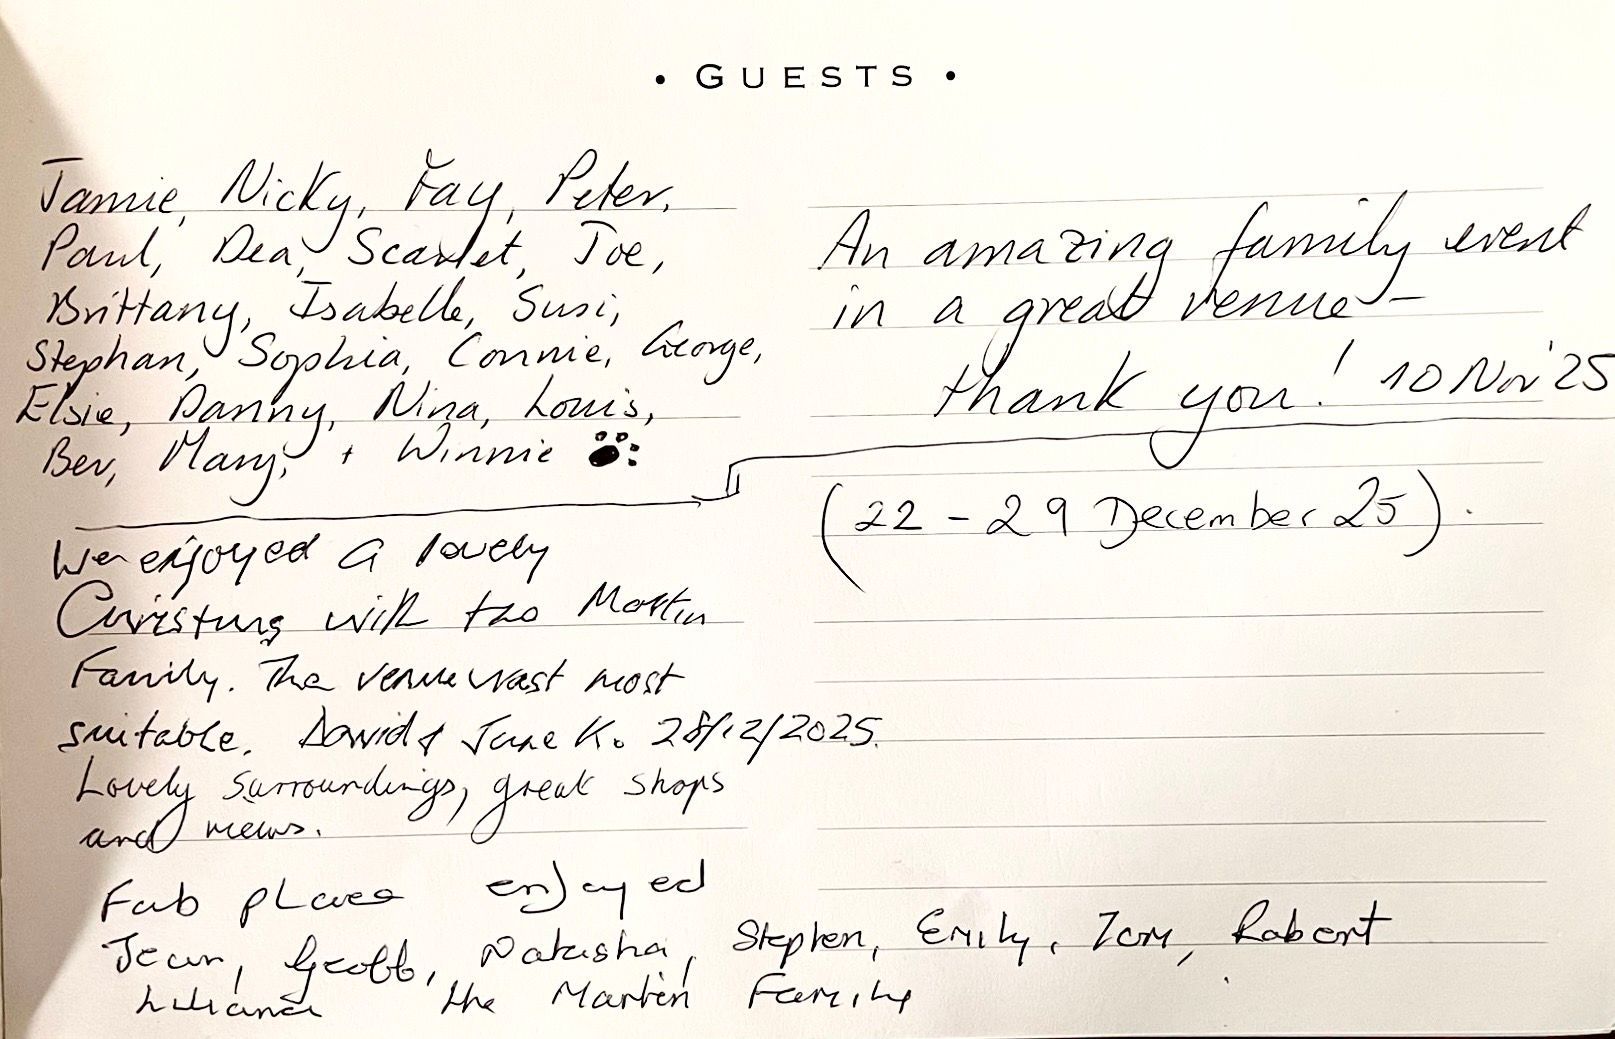 • GUESTS •
Jamie, Nicky, Fay, Peter,
Paul, Dea, Scarlet, Joe,
Brittany, Isabelle, Susi,
Stephan, Sophia, Connie, George,
Elsie, Danny, Nina, Louis,
Bev, Mary, + Winnie
An amazing family event
in a great venue –
thank you! 10 Nov '25
(22 - 29 December 25).
We enjoyed a lovely
Christmas with the Martin
Family. The venue was most
suitable. David & Jane K. 28/12/2025.
Lovely surroundings, great shops
and views.
Fab place enjoyed
Jean, Geoff, Natasha, Stephen, Emily, Tom, Robert
Luliana the Martin Family